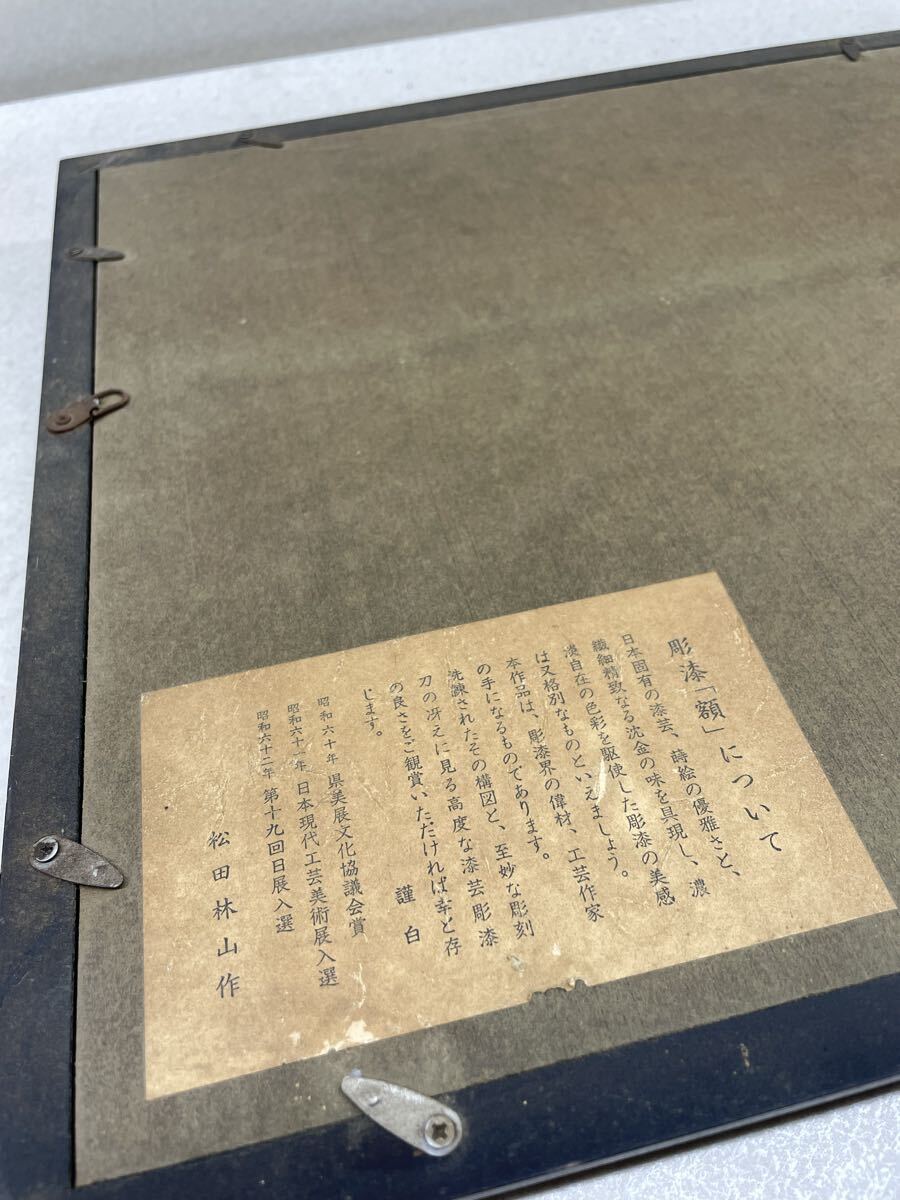 彫漆「額」について
日本固有の漆芸、蒔絵の優雅さと、
繊細精致なる沈金の味を具現し、濃
淡自在の色彩を駆使した彫漆の美感
は又格別なものといえましょう。
本作品は、彫漆界の偉材、工芸作家
の手になるものであります。
洗錬されたその構図と、至妙な彫刻
刀の冴えに見る高度な漆芸彫漆
の良さをご観賞いただければ幸と存
じます。
謹白
昭和六十年 県美展文化協議会賞
昭和六十一年 日本現代工芸美術展入選
昭和六十二年 第十九回日展入選
松田林山作